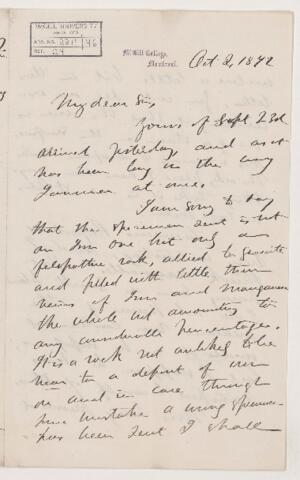 McGILL UNIVERSITY
ACC. NO. 2211/46
REF. 24
McGill College,
Montreal.
Oct 2, 1872
My dear Sir,
Yours of Sept 23d
arrived yesterday, and as it
has been long on the way
I answer at once.
I am sorry to say
that the specimen sent is not
an Iron one but only a
felspathic rock, allied to
and filled with little thin
veins of Iron and manganese
the whole not amounting to
any considerable percentage.
It is a rock not unlikely to be
near to a deposit of iron
ore and in case through
some mistake a wrong specimen
has been sent I shall